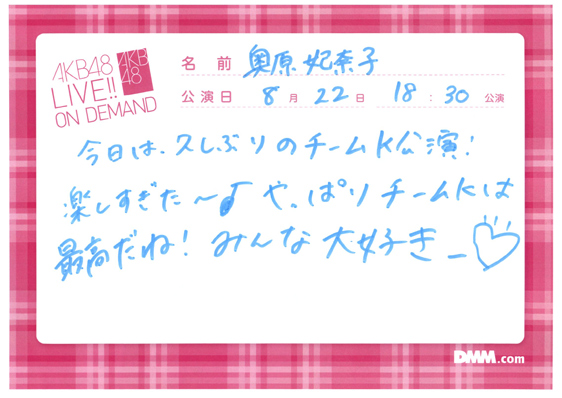 AKB48
LIVE!!
ON DEMAND
AKB
48
名前 奥原妃奈子
公演日 8月22日 18:30公演
今日は、久しぶりのチームK公演!
楽しすぎた〜♪やっぱりチームKは
最高だね!みんな大好きー♡
DMM.com